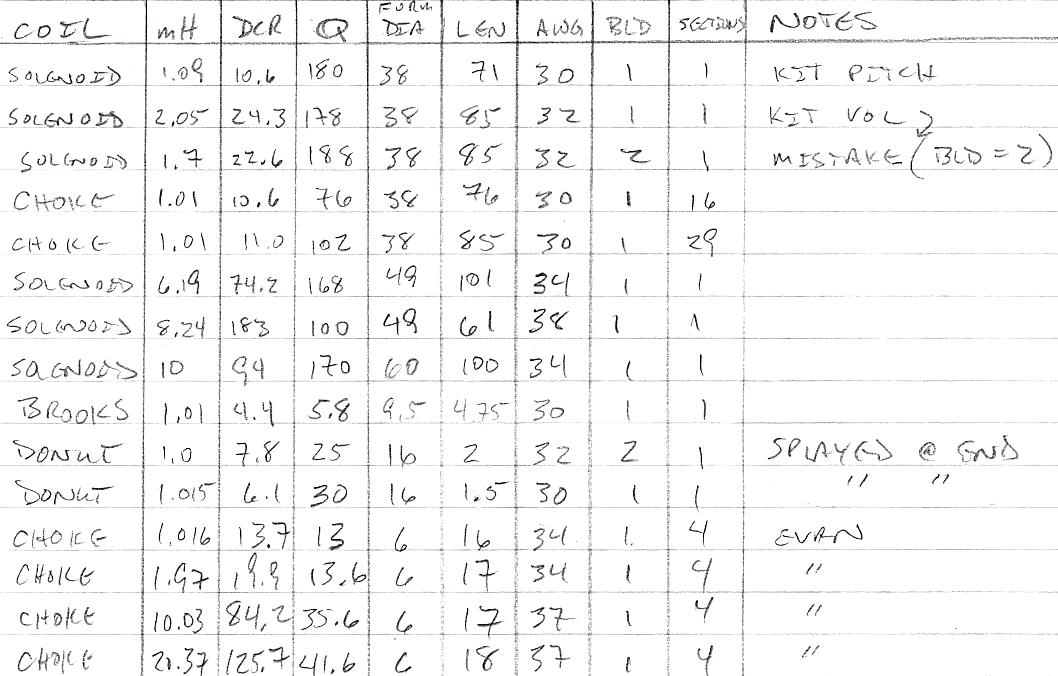 COIL mH DCR Q FORM DIA LEN AWG BLD SECTIONS NOTES
SOLENOID 1.09 10.6 180 38 71 30 1 1 KIT PITCH
SOLENOID 2.05 24.3 178 38 85 32 1 1 KIT VOL
SOLENOID 1.7 22.6 188 38 85 32 2 1 MISTAKE (BLD = 2)
CHOKE 1.01 10.6 76 38 76 30 1 16
CHOKE 1.01 11.0 102 38 85 30 1 29
SOLENOID 6.19 74.2 168 49 101 34 1 1
SOLENOID 8.24 183 100 49 61 38 1 1
SOLENOID 10 94 170 60 100 34 1 1
BROOKS 1.01 4.4 5.8 9.5 4.75 30 1 1
DONUT 1.0 7.8 25 16 2 32 2 1 SPLAYED @ END
DONUT 1.015 6.1 30 16 1.5 30 1 1 " "
CHOKE 1.016 13.7 13 6 16 34 1 4 EVAN
CHOKE 1.97 19.9 13.6 6 17 34 1 4 "
CHOKE 10.03 84.2 35.6 6 17 37 1 4 "
CHOKE 20.37 125.7 41.6 6 18 37 1 4 "